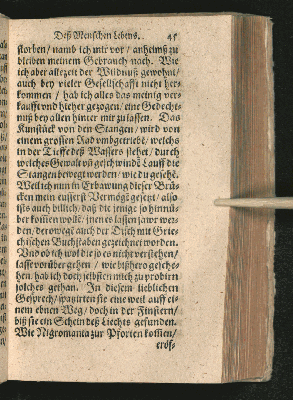 Deß Menschen Lebens. 45
storben / namb ich mir vor / anheimß zu
bleiben meinem Gebrauch nach. Wie
ich aber allezeit der Wildnuß gewohnt /
auch bey vieler Gesellschafft nicht her-
kommen / hab ich alles das meinig ver-
kaufft vnd hieher gezogen / eine Gedecht-
nuß bey allen hinter mir zu lassen. Das
Kunstück von den Stangen / wird von
einem grossen Rad vmbgetrieben / welchs
in der Tieffe deß Wassers stehet / durch
welches Gewalt vñ geschwinde Lauff die
Stangen bewegt werden / wie du gesehē.
Weil ich nun in Erbawung dieser Brü-
cken mein eusserst Vermögē gesetzt / also
ists auch billich / daß die jenige so hinnü-
ber kom̃en wollē / jnen es lassen sawr wer-
den / derowegē auch der Disch mit Grie-
chischen Buchstaben gezeichnet worden.
Vnd ob ich wol die so es nicht verstehen /
lasse vorüber gehen / wie bißhero gesche-
hen / hab ich doch selbsten mich zu probirn
solches gethan. In diesem lieblichen
Gesprech / spatzirten sie eine weil auff ei-
nem ebnen Weg / doch in der Finstern /
biß sie ein Schein deß Liechts gefunden.
Wie Nigromantia zur Pforten kom̃en /
eröf-